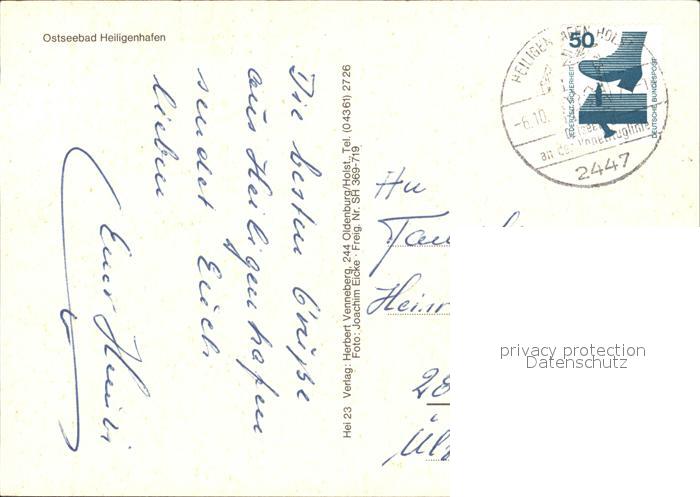 Ostseebad Heiligenhafen
Die besten Grüße
aus Heiligenhafen
sendet Euch
lieben
Euer
Hei.23 Verlag: Herbert Venneberg, 244 Oldenburg/Holst., Tel. (04361) 2726
Foto: Joachim Eicke · Freig. Nr. SH 369-719
50
JEDERZEIT SICHERHEIT
DEUTSCHE BUNDESPOST
HEILIGENHAFEN HOLST
-6.10.
an der Vogelfluglinie
2447
An
Fam
Heinr
28
privacy protection
Datenschutz